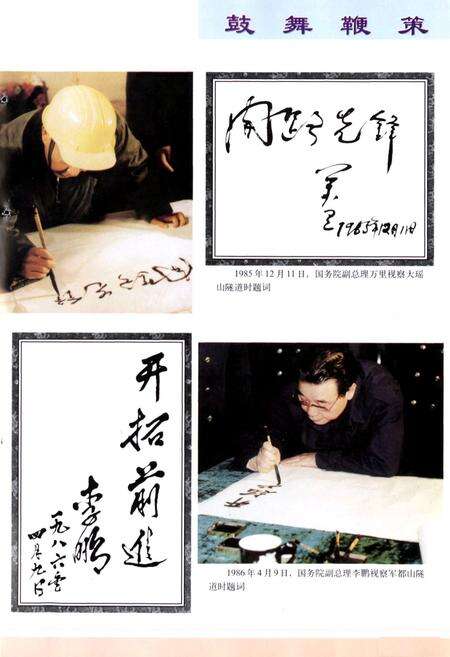 鼓舞鞭策
开路先锋
万里
1985年12月11日
1985年12月11日，国务院副总理万里视察大瑶
山隧道时题词
开拓前进
李鹏
一九八六年
四月九日
1986年4月9日，国务院副总理李鹏视察军都山隧
道时题词